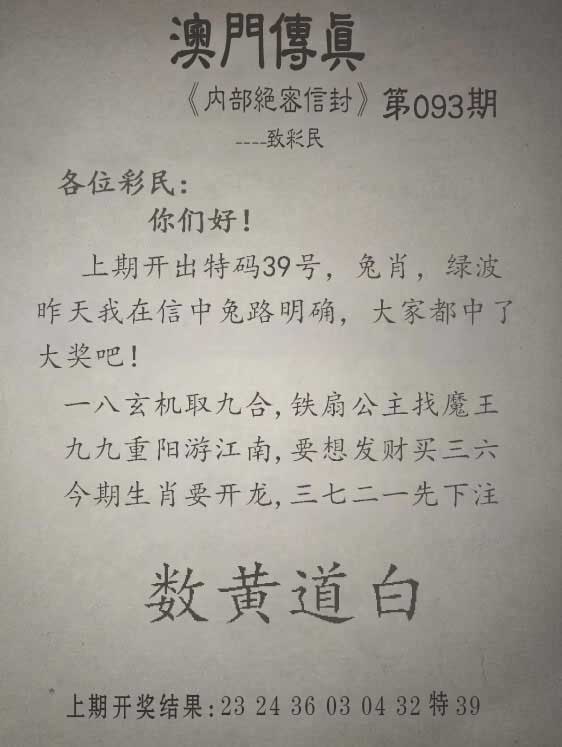 澳門傳眞
《内部絕密信封》第093期
----致彩民
各位彩民：
你们好！
上期开出特码39号，兔肖，绿波
昨天我在信中兔路明确，大家都中了
大奖吧！
一八玄机取九合,铁扇公主找魔王
九九重阳游江南,要想发财买三六
今期生肖要开龙,三七二一先下注
数黄道白
上期开奖结果:23 24 36 03 04 32 特 39